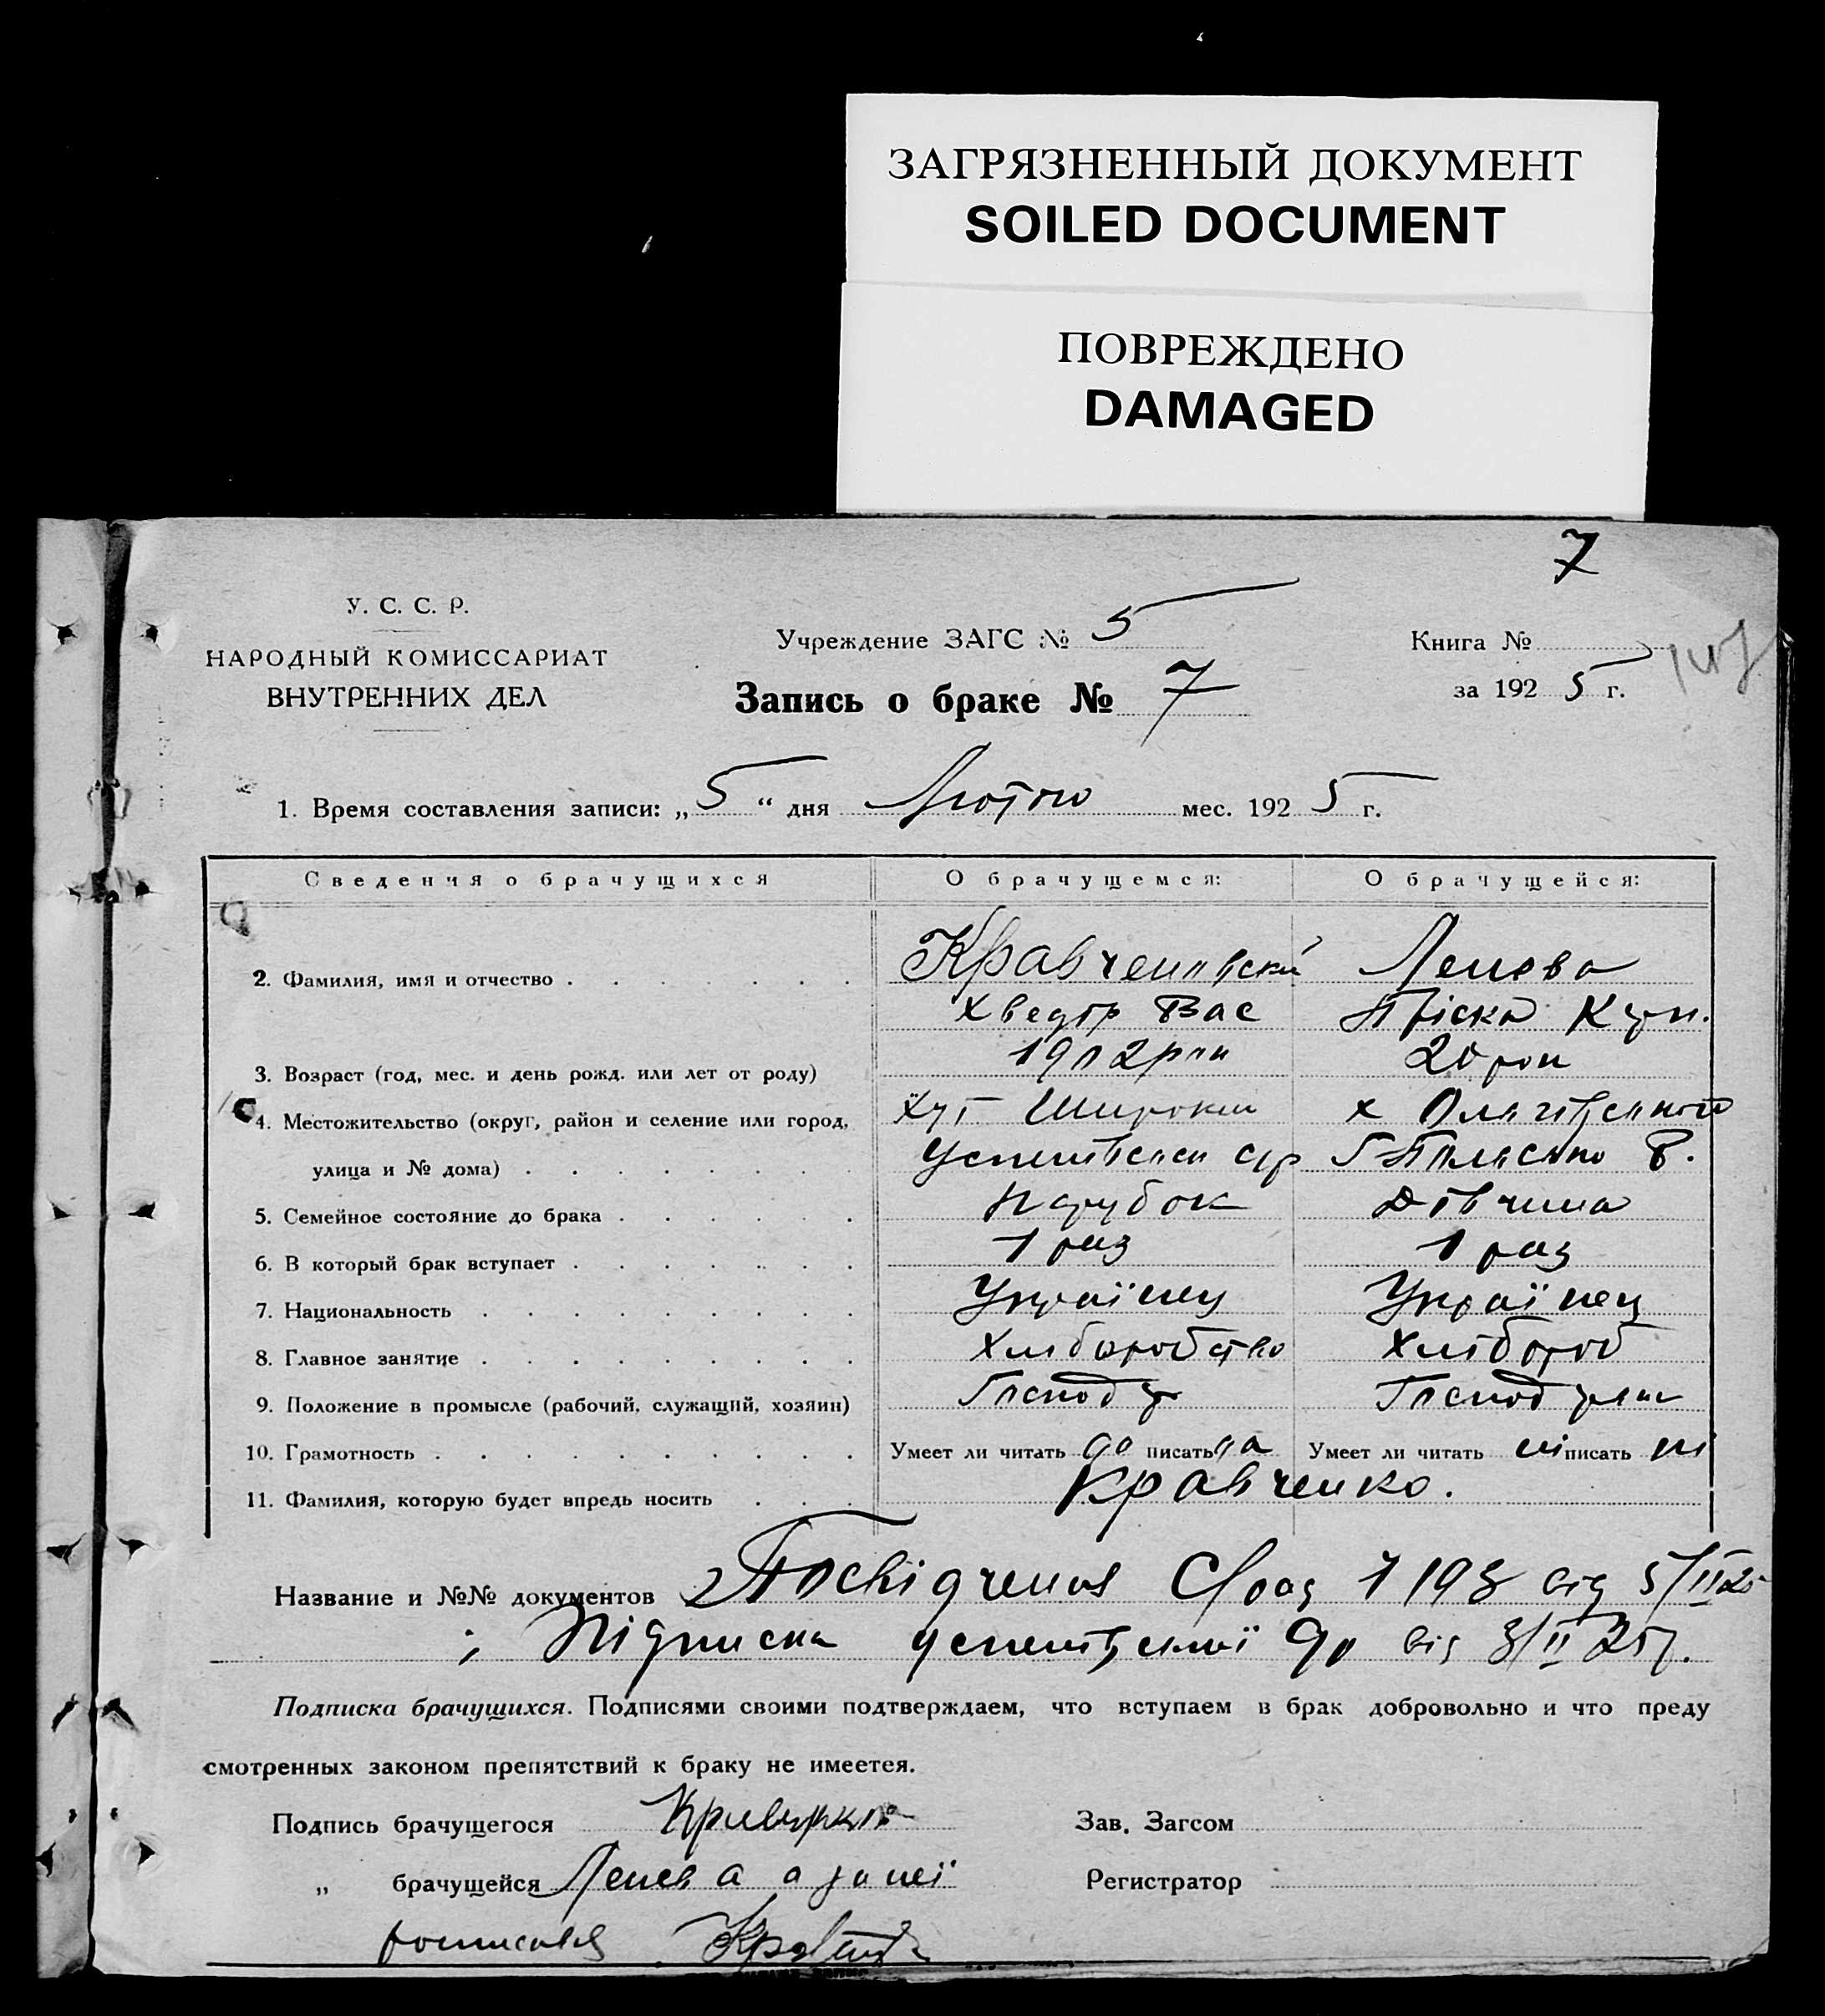 ЗАГРЯЗНЕННЫЙ ДОКУМЕНТ
SOILED DOCUMENT
ПОВРЕЖДЕНО
DAMAGED
7
У. С. С. Р.
НАРОДНЫЙ КОМИССАРИАТ
ВНУТРЕННИХ ДЕЛ
Учреждение ЗАГС № 5
Запись о браке № 7
Книга №
за 1925 г.
1. Время составления записи: „5“ дня Лютого мес. 1925 г.
Сведения о брачущихся О брачущемся: О брачущейся:
2. Фамилия, имя и отчество Ленева
Хведір Вас Пріска
3. Возраст (год, мес. и день рожд. или лет от роду) 1902 20
4. Местожительство (округ, район и селение или город, Хут Широкий х
улица и № дома)
5. Семейное состояние до брака Парубок Дівчина
6. В который брак вступает 1 раз 1 раз
7. Национальность Українец Українец
8. Главное занятие Хліборобство Хлібороб
9. Положение в промысле (рабочий, служащий, хозяин) Господ
10. Грамотность Умеет ли читать да писать да Умеет ли читать ні писать ні
11. Фамилия, которую будет впредь носить Кравченко.
Название и №№ документов Посвідчення від 5/II 25
; Підписка від 3/II 25 р.
Подписка брачущихся. Подписями своими подтверждаем, что вступаем в брак добровольно и что преду
смотренных законом препятствий к браку не имеется.
Подпись брачущегося Зав. Загсом
„ брачущейся Ленева а за неї Регистратор